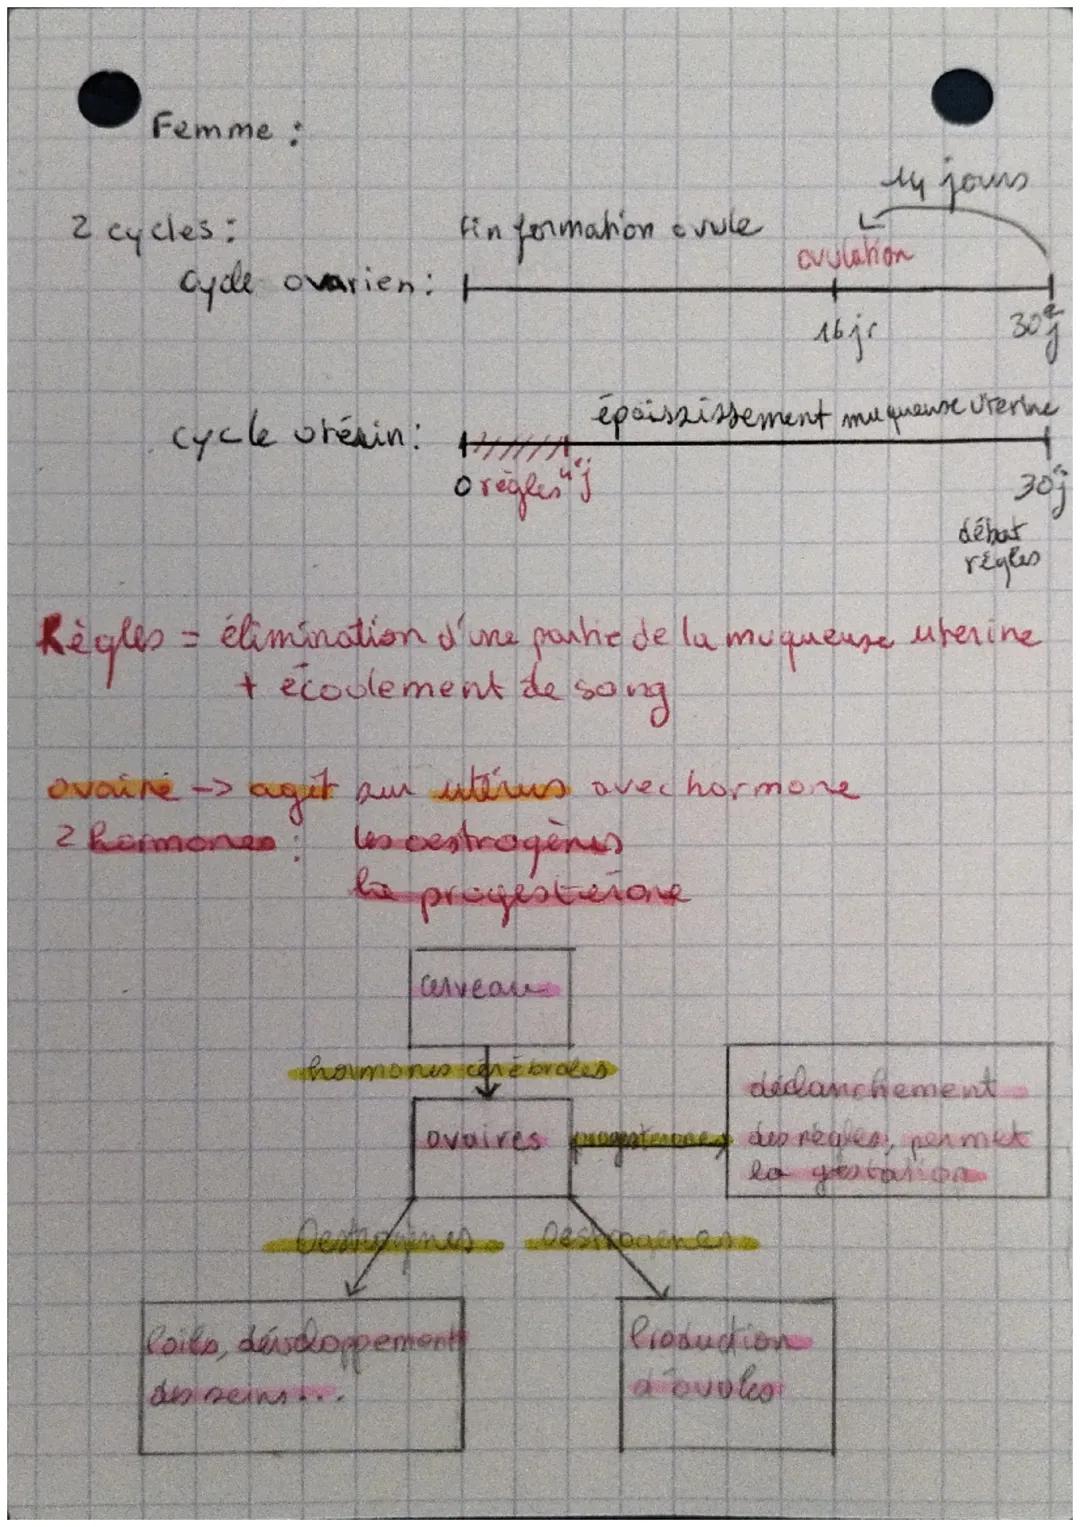 Femme :
14 jours
2 cycles :
fin formation ovule
ovulation
cycle ovarien :
16 jr
30e j
épaississement muqueuse uterine
cycle utérin :
0 règles 4e j
30e j
début
règles
Règles = élimination d'une partie de la muqueuse uterine
+ écoulement de sang
ovaire -> agit sur utérus avec hormone
2 hormones : les oestrogènes
la progesterone
cerveau
hormones cérébrales
déclanchement
ovaires
progesterones
des règles, permet
la gestation
Oestrogènes
Oestrogenes
Poils, développement
des seins...
Production
d'ovules